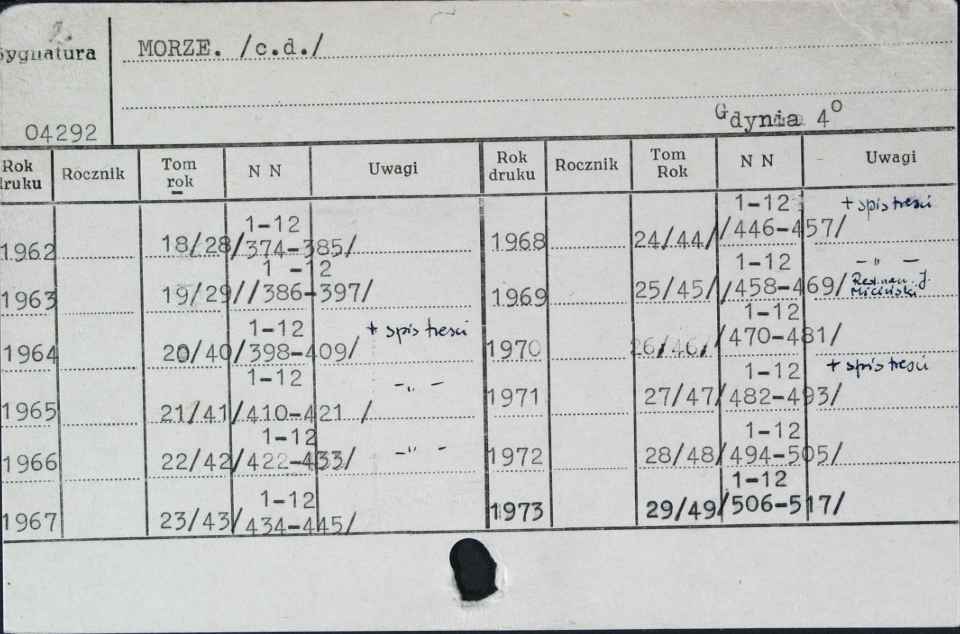 2.
Sygnatura
MORZE. /c.d./
04292
Gdynia 4º
Rok druku Rocznik Tom rok N N Uwagi Rok druku Rocznik Tom Rok N N Uwagi
1962 18/28 1-12 /374-385/ 1968 24/44/ 1-12 /446-457/ + spis treści
1963 19/29/ 1 -12 /386-397/ 1969 25/45/ 1-12 /458-469/ - " - J. Miciński
1964 20/40 1-12 /398-409/ + spis treści 1970 26/46/ 1-12 /470-481/
1965 21/41 1-12 /410-421 / - " - 1971 27/47 1-12 /482-493/ + spis treści
1966 22/42 1-12 /422-433/ - " - 1972 28/48 1-12 /494-505/
1967 23/43 1-12 /434-445/ 1973 29/49 1-12 /506-517/